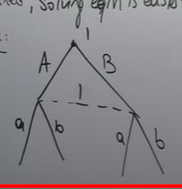 solving eqn is easie
:
1
A B
1
a b a b